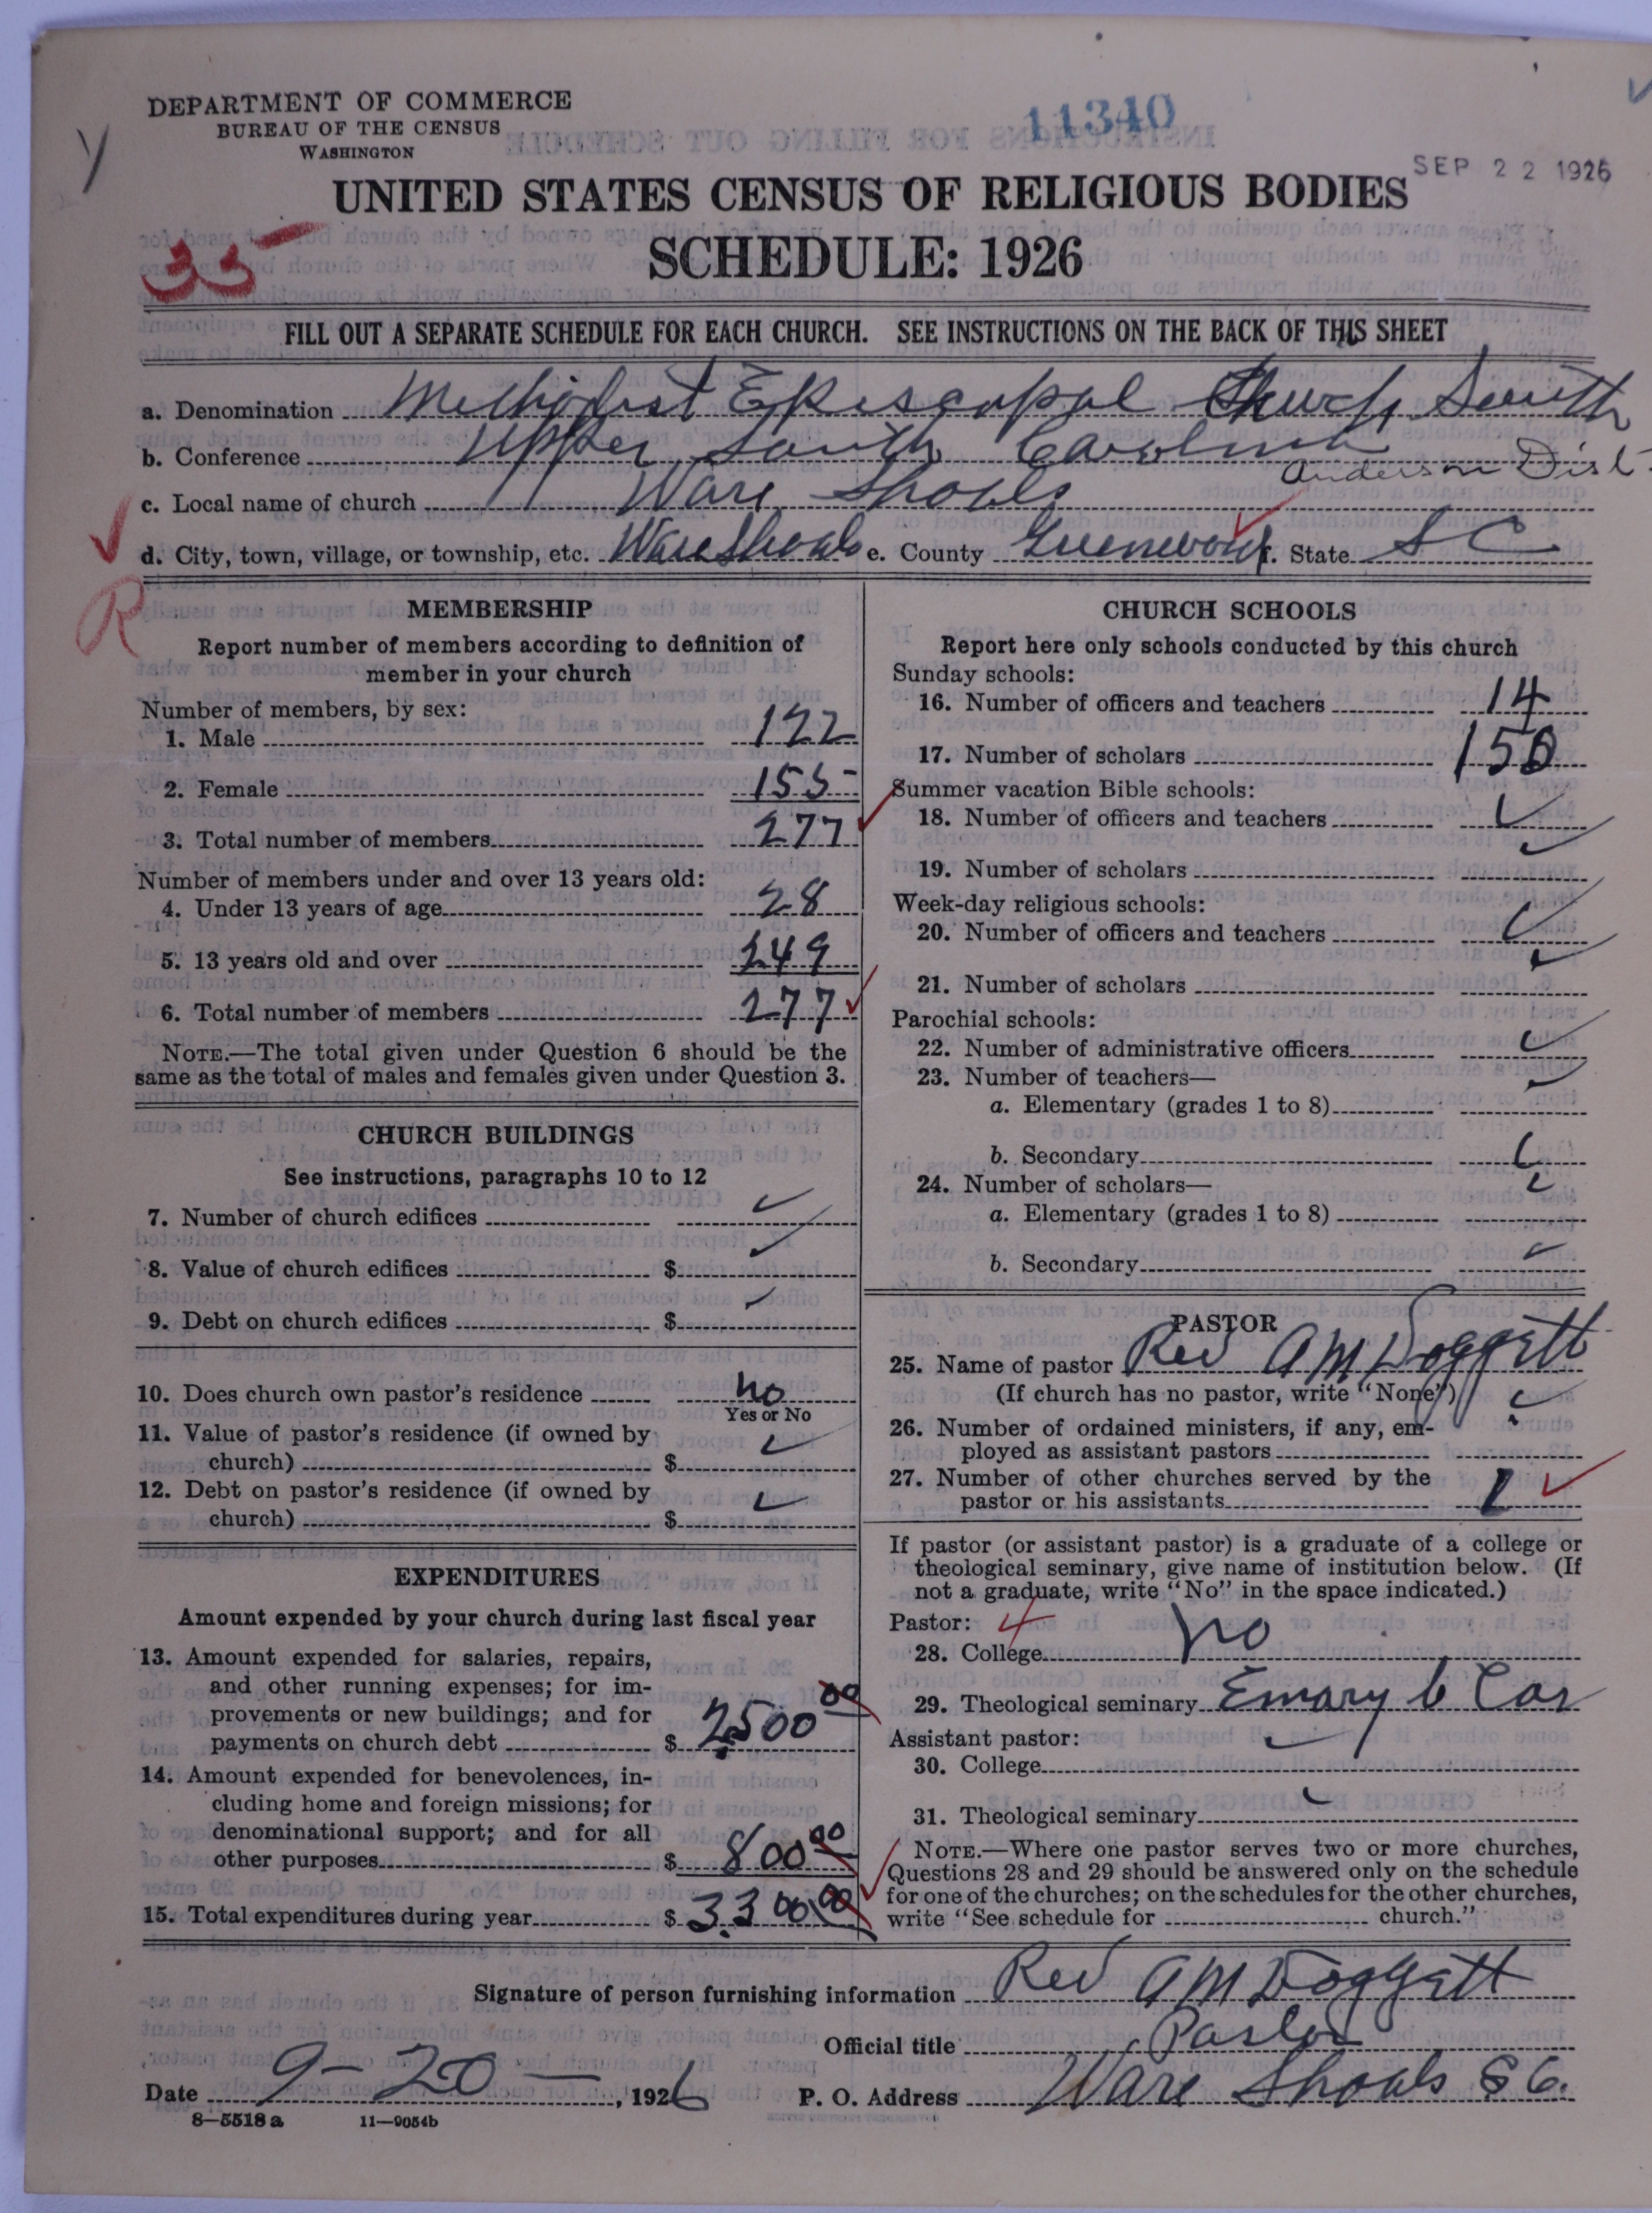 DEPARTMENT OF COMMERCE
BUREAU OF THE CENSUS
WASHINGTON
11340
SEP 22 1926
UNITED STATES CENSUS OF RELIGIOUS BODIES
SCHEDULE: 1926
35
FILL OUT A SEPARATE SCHEDULE FOR EACH CHURCH. SEE INSTRUCTIONS ON THE BACK OF THIS SHEET
a. Denomination Methodist Episcopal Church South
b. Conference Upper South Carolina
Anderson Dist
c. Local name of church Ware Shoals
d. City, town, village, or township, etc. Ware Shoals e. County Greenwood f. State S C
R
MEMBERSHIP
Report number of members according to definition of
member in your church
Number of members, by sex:
1. Male 122
2. Female 155
3. Total number of members 277
Number of members under and over 13 years old:
4. Under 13 years of age 28
5. 13 years old and over 249
6. Total number of members 277
NOTE.—The total given under Question 6 should be the
same as the total of males and females given under Question 3.
CHURCH BUILDINGS
See instructions, paragraphs 10 to 12
7. Number of church edifices
8. Value of church edifices $
9. Debt on church edifices $
10. Does church own pastor's residence no
Yes or No
11. Value of pastor's residence (if owned by
church) $
12. Debt on pastor's residence (if owned by
church) $
EXPENDITURES
Amount expended by your church during last fiscal year
13. Amount expended for salaries, repairs,
and other running expenses; for im-
provements or new buildings; and for
payments on church debt $ 2500 00
14. Amount expended for benevolences, in-
cluding home and foreign missions; for
denominational support; and for all
other purposes $ 800 00
15. Total expenditures during year $ 3300 00
CHURCH SCHOOLS
Report here only schools conducted by this church
Sunday schools:
16. Number of officers and teachers 14
17. Number of scholars 150
Summer vacation Bible schools:
18. Number of officers and teachers
19. Number of scholars
Week-day religious schools:
20. Number of officers and teachers
21. Number of scholars
Parochial schools:
22. Number of administrative officers
23. Number of teachers—
a. Elementary (grades 1 to 8)
b. Secondary
24. Number of scholars—
a. Elementary (grades 1 to 8)
b. Secondary
PASTOR
25. Name of pastor Rev A M Doggett
(If church has no pastor, write "None")
26. Number of ordained ministers, if any, em-
ployed as assistant pastors
27. Number of other churches served by the
pastor or his assistants 1
If pastor (or assistant pastor) is a graduate of a college or
theological seminary, give name of institution below. (If
not a graduate, write "No" in the space indicated.)
Pastor: 4
28. College no
29. Theological seminary Emory
Assistant pastor:
30. College
31. Theological seminary
NOTE.—Where one pastor serves two or more churches,
Questions 28 and 29 should be answered only on the schedule
for one of the churches; on the schedules for the other churches,
write "See schedule for church."
Signature of person furnishing information Rev A M Doggett
Official title Pastor
Date 9-20-, 1926 P. O. Address Ware Shoals S C.
8—5518 a 11—9054b